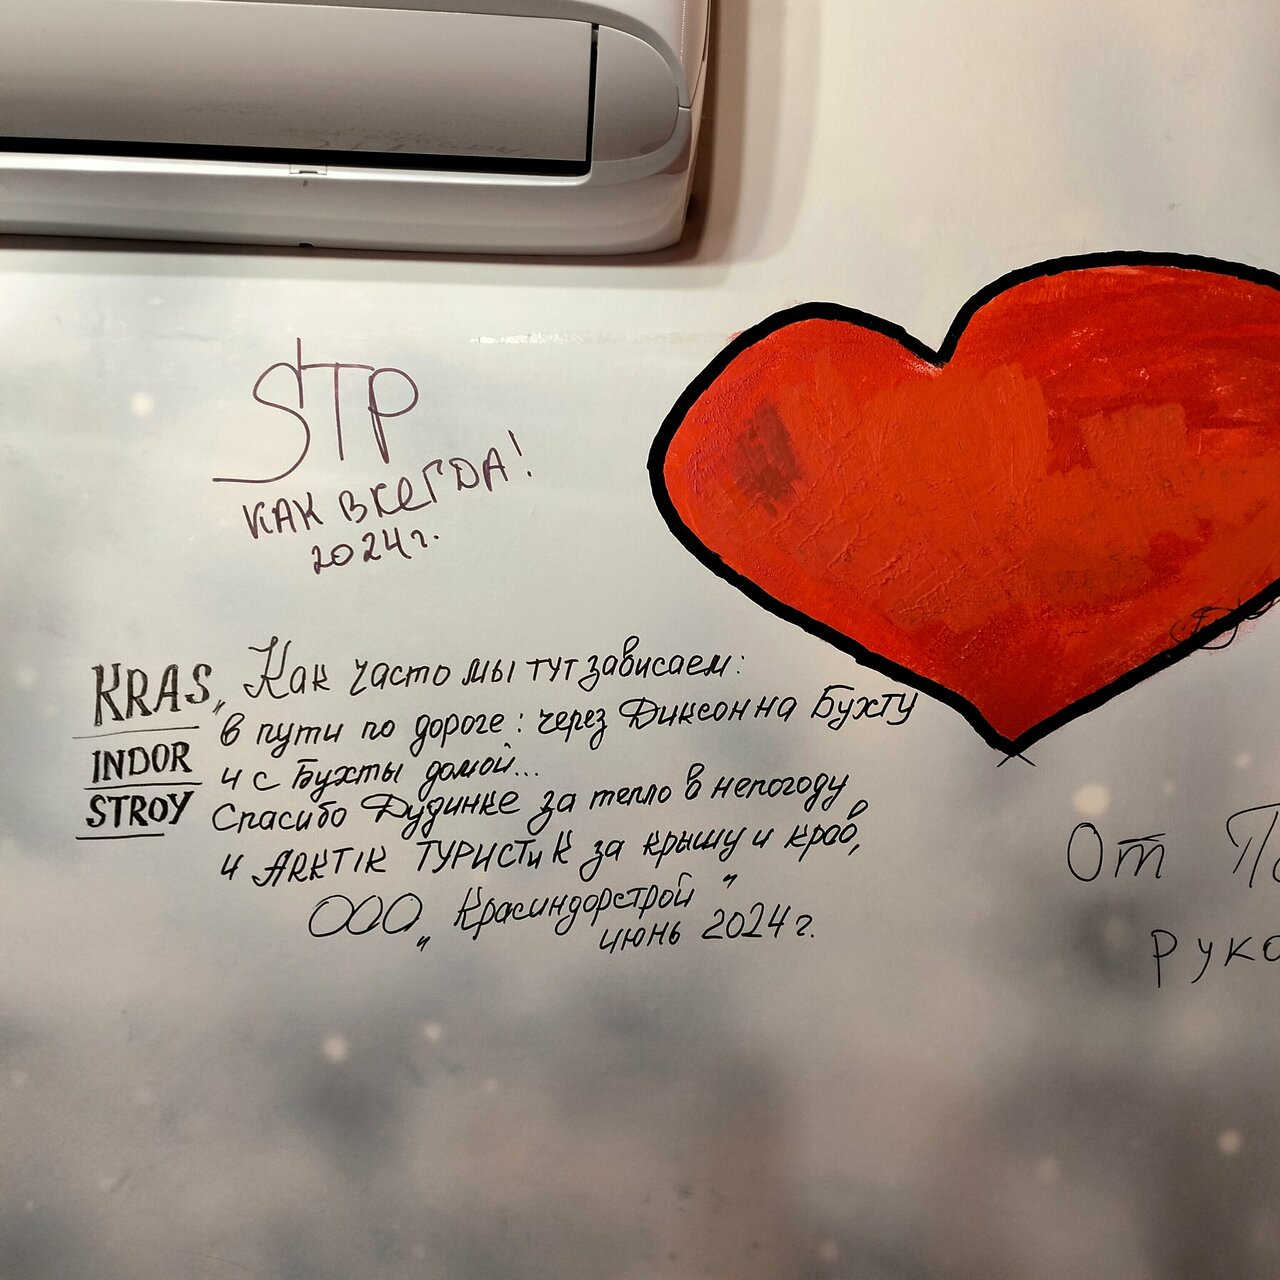 STP
КАК ВСЕГДА!
2024г.
KRAS
INDOR
STROY
„Как часто мы тут зависаем:
в пути по дороге: через Диксон на Бухту
и с Бухты домой...
Спасибо Дудинке за тепло в непогоду
и ARKTIK ТУРИСТиК за крышу и краб,
ООО „Красиндорстрой"
июнь 2024г.
От